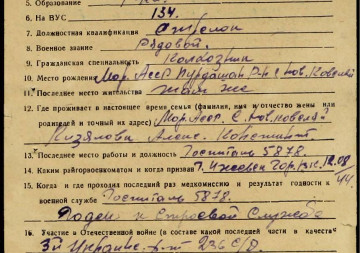 5. Образование
6. На ВУС 134.
7. Должностная квалификация стрелок
8. Военное звание Рядовой.
9. Гражданская специальность Колхозник
10. Место рождения Мор. Асср Пурдошан. Р-н с.
11. Последнее место жительства там же
12. Где проживает в настоящее время семья (фамилия, имя и отчество жены или
родителей и точный их адрес) Мор. Асср. с.
Алекс. Констант.
13. Последнее место работы и должность Госпиталь 5878.
14. Каким райгорвоенкоматом и когда призван Г. Ижевск Гор. 12.08
44.
15. Когда и где проходил последний раз медкомиссию и результат годности к
военной службе Госпиталь 5878.
Годен к строевой службе
16. Участие в Отечественной войне (в составе какой последней части и в качестве
3й Украинс. 236 С/Д.